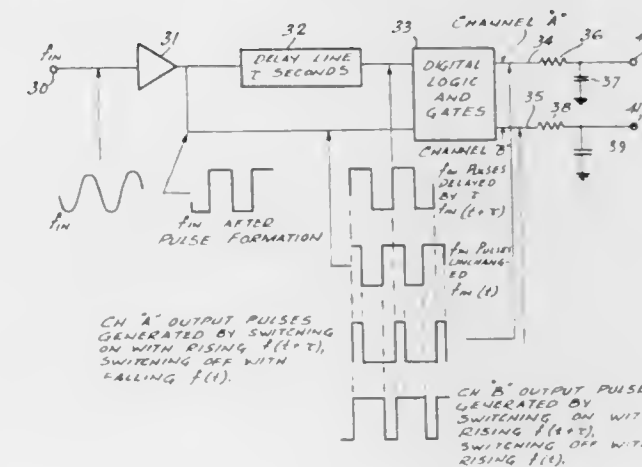 CHANNEL "A"
fIN
31
32
33
34
36
30
DELAY LINE
τ SECONDS
DIGITAL
LOGIC
AND
GATES
37
35
38
39
CHANNEL "B"
fIN
fIN AFTER
PULSE FORMATION
fIN PULSES
DELAYED
BY τ
fIN (t+τ)
fIN PULSES
UNCHANG-
ED
fIN (t)
CH "A" OUTPUT PULSES
GENERATED BY SWITCHING
ON WITH RISING f(t+τ),
SWITCHING OFF WITH
FALLING f(t).
CH "B" OUTPUT PULSE
GENERATED BY
SWITCHING ON WIT
RISING f(t+τ),
SWITCHING OFF WIT
RISING f(t).